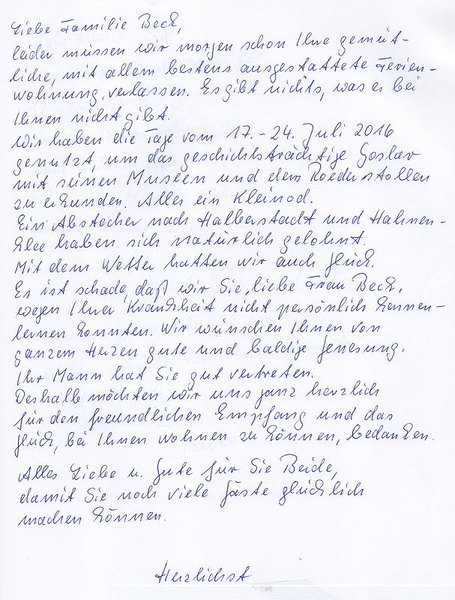 Liebe Familie Beck,
leider müssen wir morgen schon Ihre gemüt-
liche, mit allem bestens ausgestattete Ferien-
wohnung, verlassen. Es gibt nichts, was es bei
Ihnen nicht gibt.
Wir haben die Tage vom 17.-24. Juli 2016
genutzt, um das geschichtsträchtige Goslar
mit seinen Museen und dem Roederstollen
zu erkunden. Alles ein Kleinod.
Ein Abstecher nach Halberstadt und Hahnen-
klee haben sich natürlich gelohnt.
Mit dem Wetter hatten wir auch Glück.
Es ist schade, daß wir Sie, liebe Frau Beck,
wegen Ihrer Krankheit nicht persönlich kennen-
lernen konnten. Wir wünschen Ihnen von
ganzem Herzen gute und baldige Genesung.
Ihr Mann hat Sie gut vertreten.
Deshalb möchten wir uns ganz herzlich
für den freundlichen Empfang und das
Glück, bei Ihnen wohnen zu können, bedanken.
Alles Liebe u. Gute für Sie Beide,
damit Sie noch viele Gäste glücklich
machen können.
Herzlichst